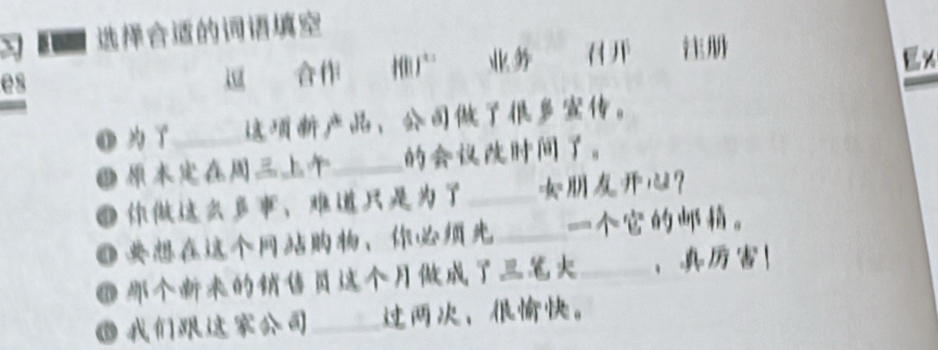 习 选择合适的词语填空
es
逗 合作 推广 业务 召开 注册
Ex
为了____这项新产品，公司做了很多宣传。
原本定在周三上午____的会议改时间了。
你做这么多事，难道只是为了____女朋友开心？
要想在这个网站购物，你必须先____一个它的邮箱。
那个新来的销售员这个月做成了三笔大____，真厉害！
我们跟这家公司____过两次，很愉快。